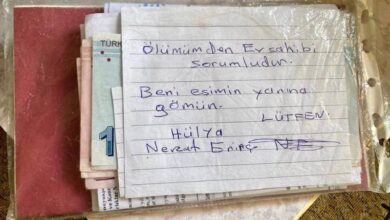 TÜRK
1
Ölümümden Ev sahibi
sorumludur.
Beni eşimin yanına
gömün.
LÜTFEN.
Hülya
Nevzat